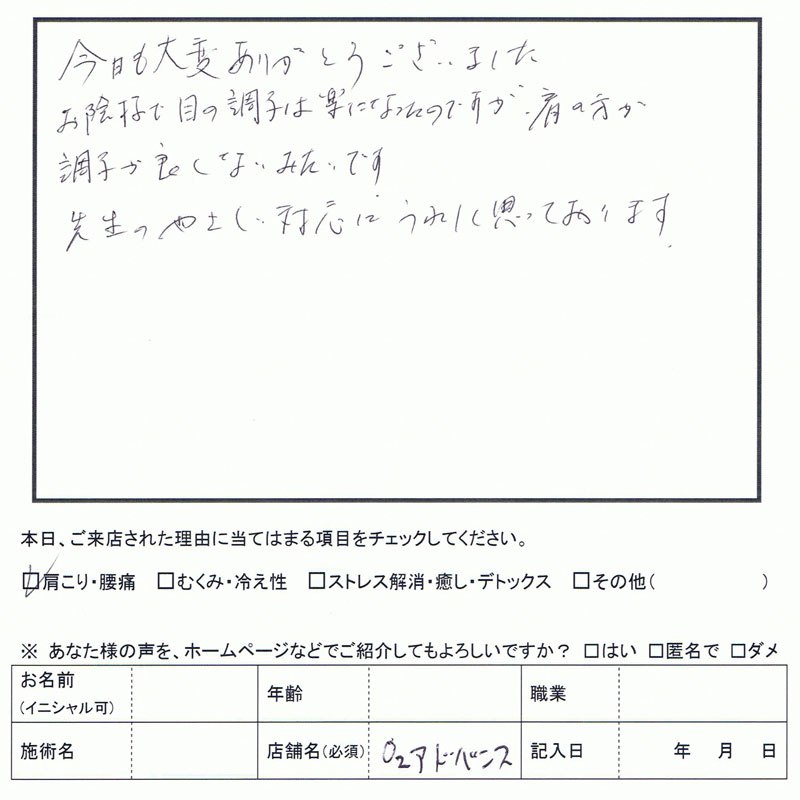 今日も大変ありがとうございました
お陰様で目の調子は楽になったのですが、肩の方が
調子が良くないみたいです
先生のやさしい対応にうれしく思っております。
本日、ご来店された理由に当てはまる項目をチェックしてください。
☑肩こり・腰痛 □むくみ・冷え性 □ストレス解消・癒し・デトックス □その他( )
※ あなた様の声を、ホームページなどでご紹介してもよろしいですか？ □はい □匿名で □ダメ
お名前 (イニシャル可) 年齢 職業
施術名 店舗名(必須) O2アドバンス 記入日 年 月 日